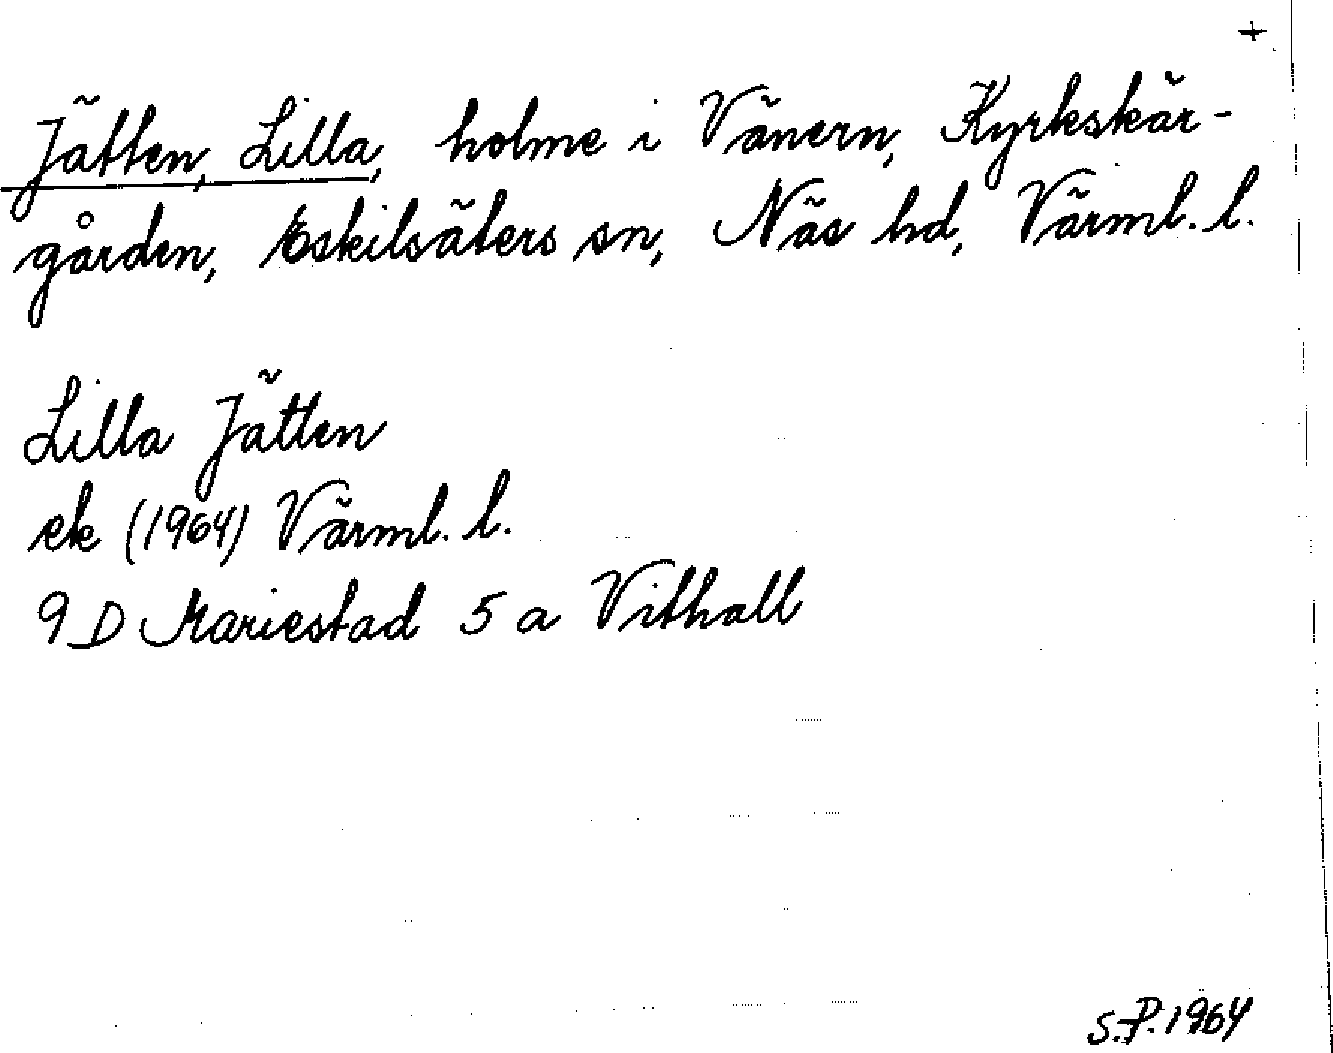 +
Jätten, Lilla, holme i Vänern, Kyrkskär-
gården, Eskilsäters sn, Näs hd, Värml. l.
Lilla Jätten
ek (1964) Värml. l.
9 D Mariestad 5 a Vithall
S.P. 1964